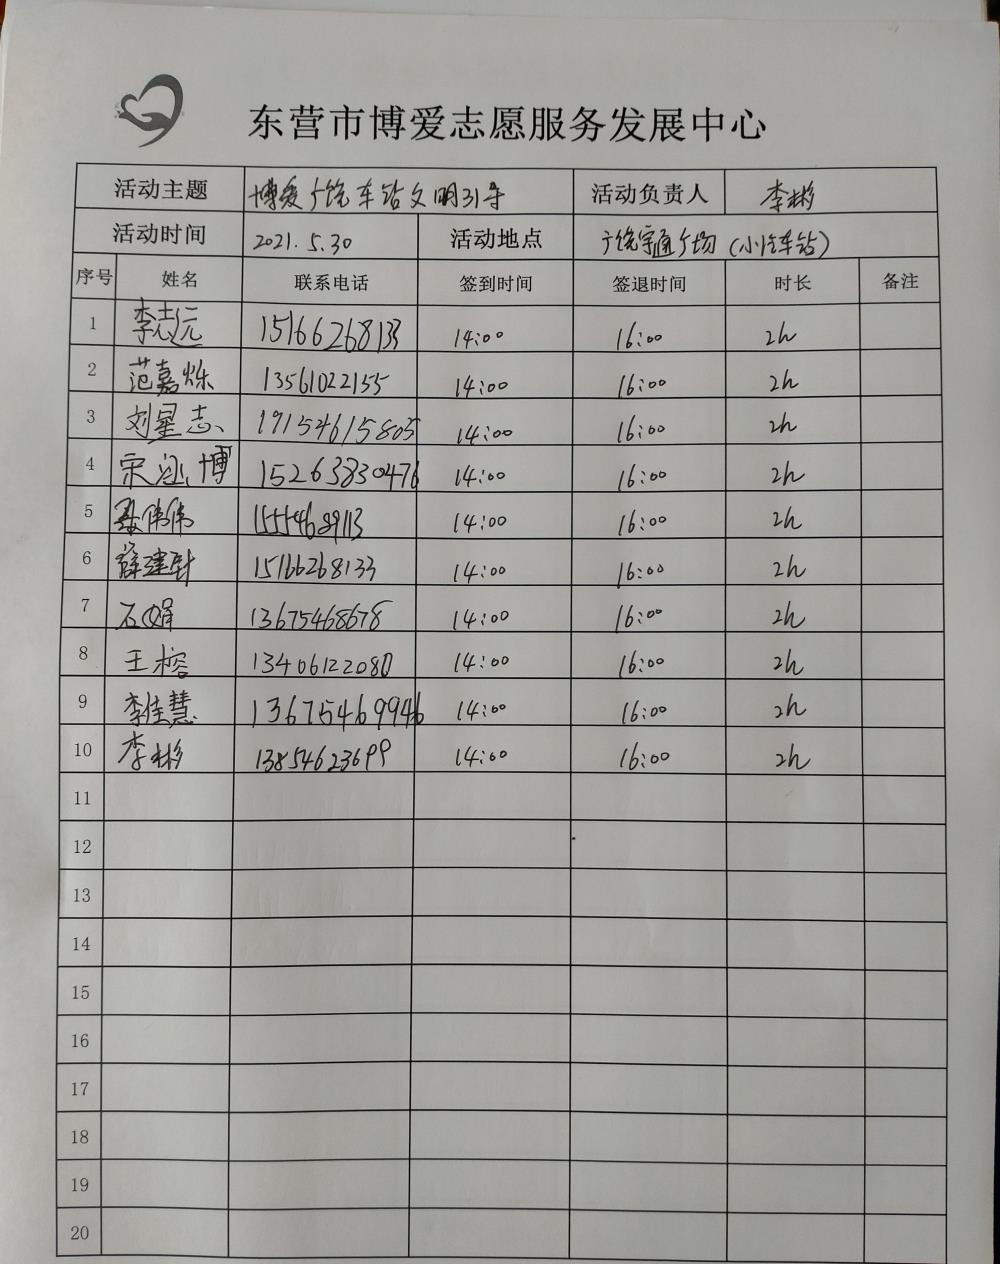 东营市博爱志愿服务发展中心
活动主题 博爱广饶车站文明引导 活动负责人 李彬
活动时间 2021.5.30 活动地点 广饶宇通广场(小汽车站)
序号 姓名 联系电话 签到时间 签退时间 时长 备注
1 李志远 15166268133 14:00 16:00 2h
2 范嘉烁 13561022155 14:00 16:00 2h
3 刘星志 19154615805 14:00 16:00 2h
4 宋涵博 15263830476 14:00 16:00 2h
5 聂伟伟 15554689113 14:00 16:00 2h
6 薛建 15166268133 14:00 16:00 2h
7 石娟 13675468678 14:00 16:00 2h
8 王榕 13406122080 14:00 16:00 2h
9 李佳慧 13675469946 14:00 16:00 2h
10 李彬 13854623699 14:00 16:00 2h
11
12
13
14
15
16
17
18
19
20